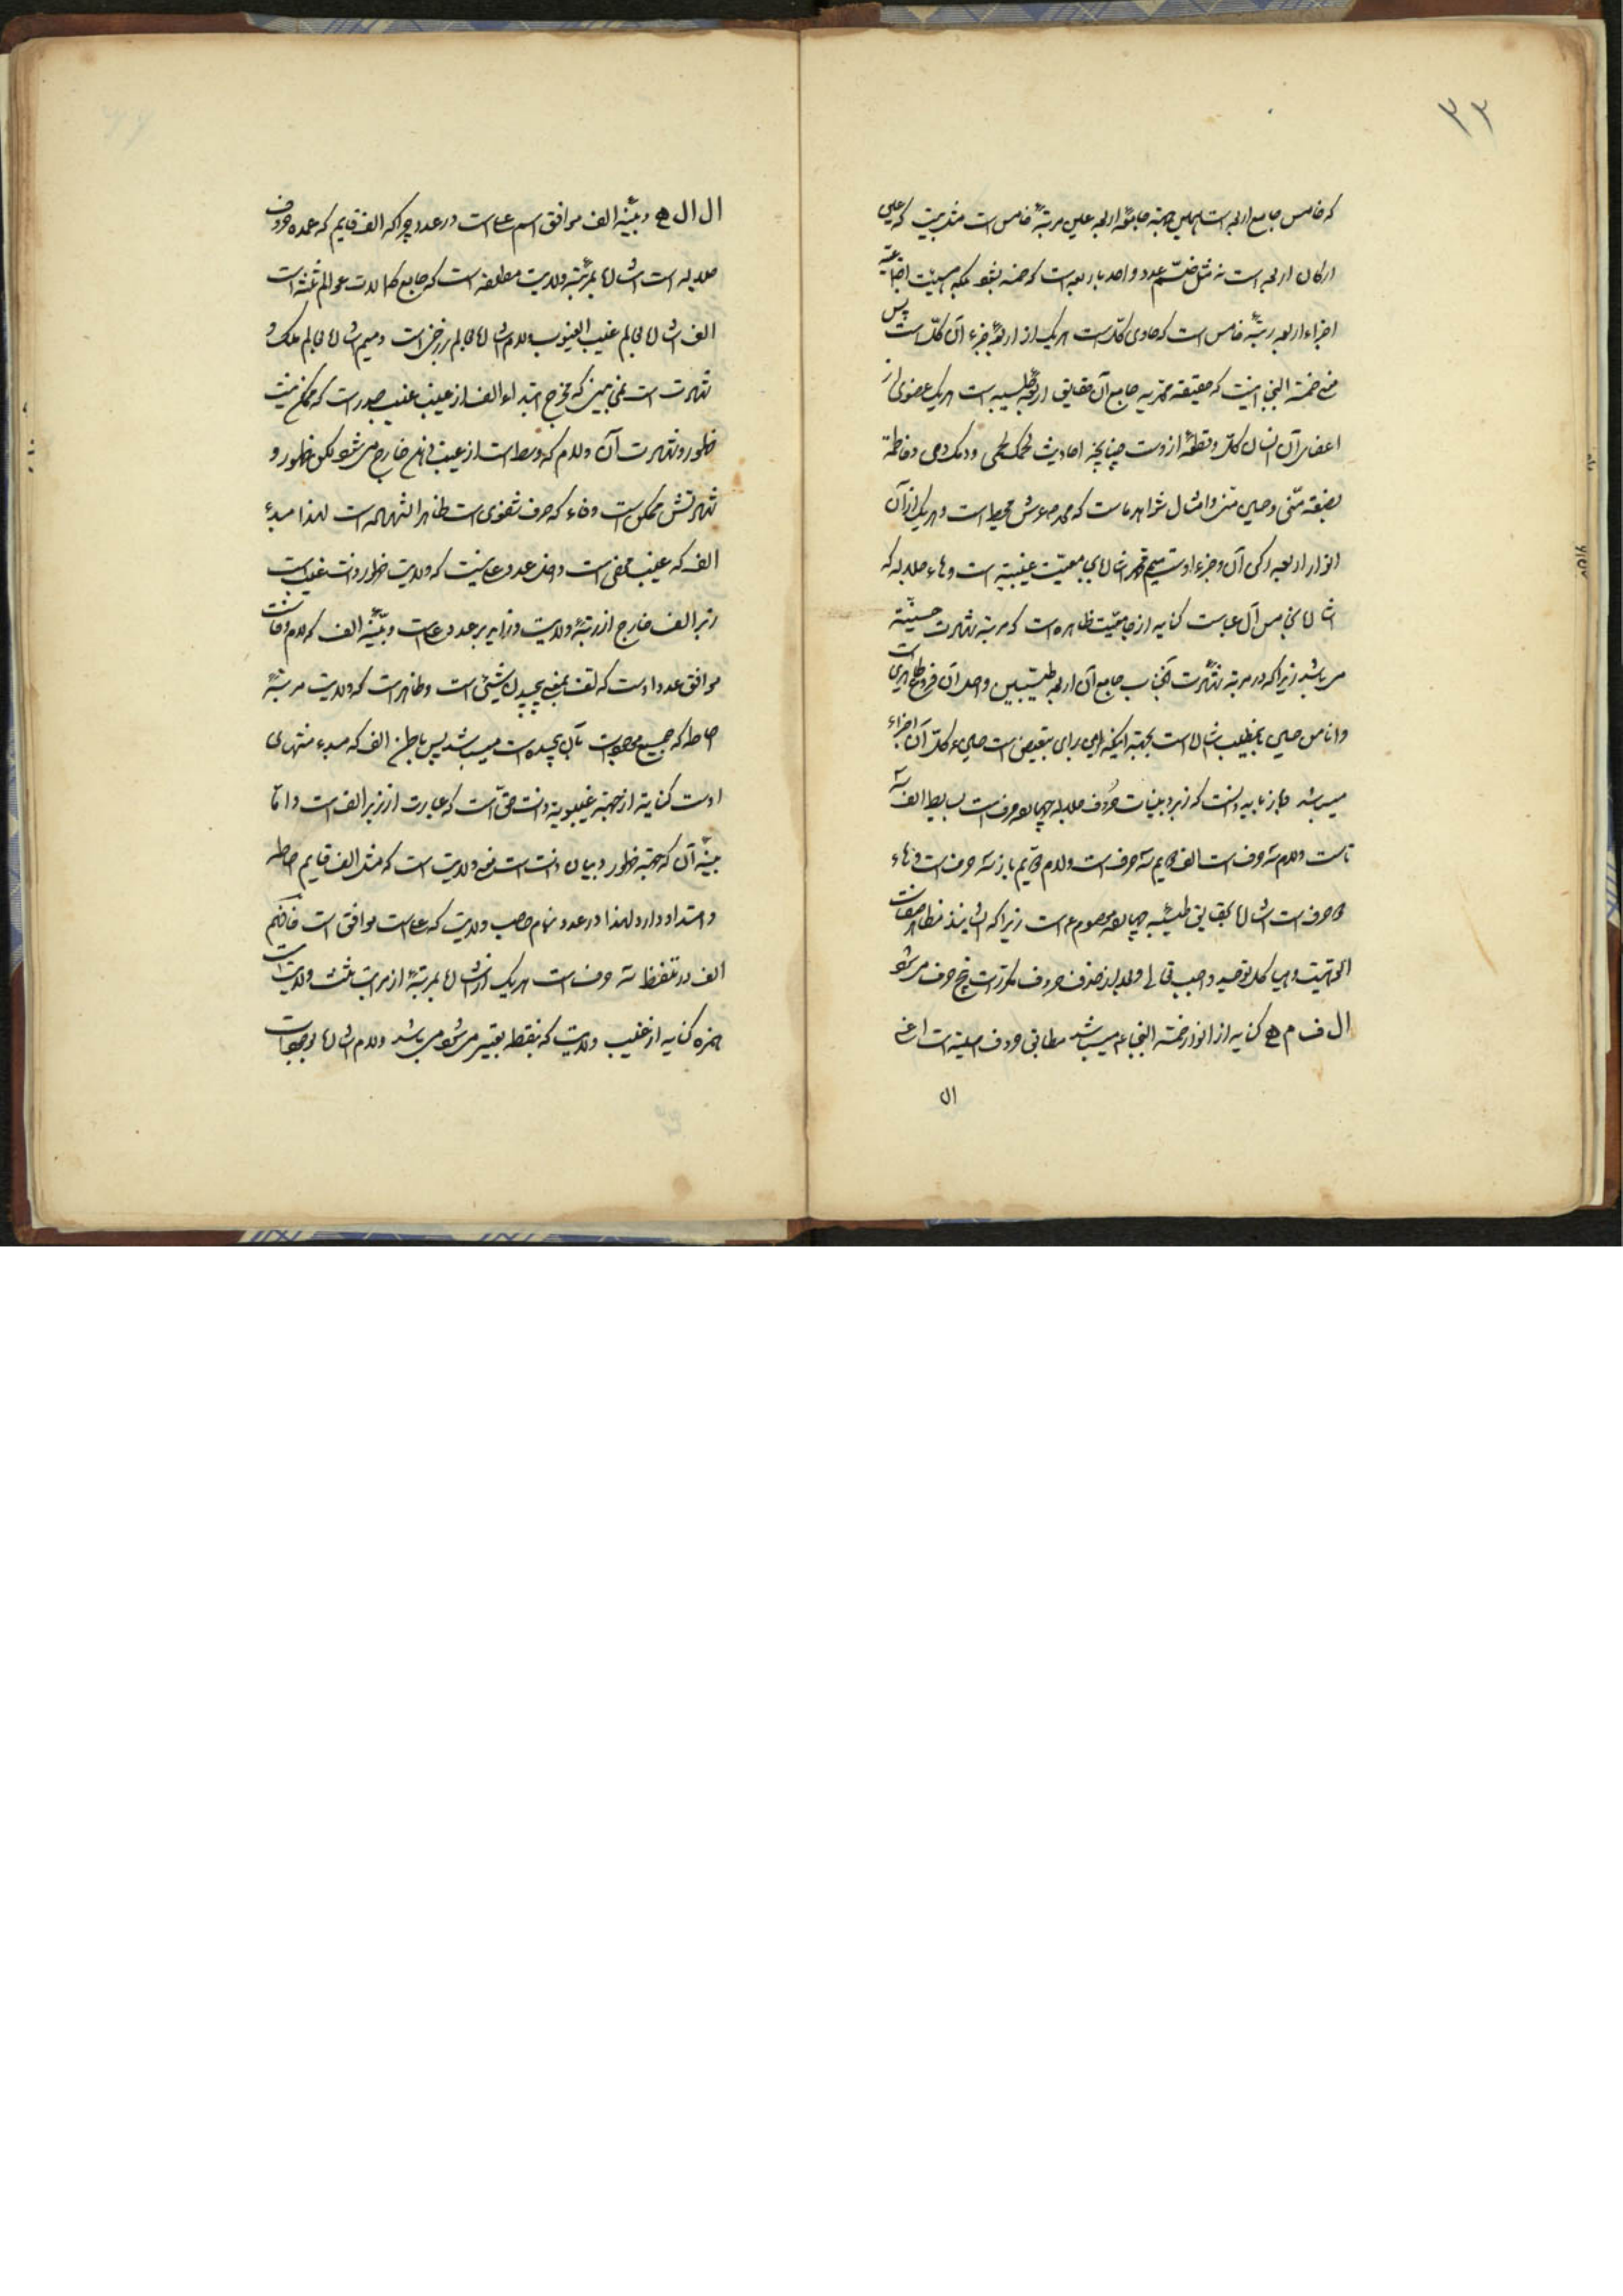 ۳۳
که خامس جامع اربعه است بهمین جهته جامعهٔ اربعه علین مرتبهٔ خامس است مثل بیت که علی
ارکان اربعه است نه مثل ضمّ عدد واحد باربعه است که خمسه بشود بلکه هیئت اجتماعیه
اجزاء اربعه رتبهٔ خامس است که حاوی کلّ است هر یک از اربعهٔ جزء آن کلّ است پس
خمسة النجبا اینست که حقیقه محمّدیه جامع آن حقایق اربعهٔ طیبه است هر یک عضوی از
اعضای آن انسان کلّ و قطعهٔ از اوست چنانچه احادیث لحمک لحمی و دمک دمی و فاطمة
بضعة منّی و حسین منّی و امثال شواهد ماست که محمد ص عرش محیط است و هر یک از آن
انوار اربعه رکن آن و جزء اوست میم اشاره باین معیّت غیبیّه است و هاء جلاله که
اشاره بخامس آل عباست کنایه از جامعیّت ظاهره است که مرتبه شهادت حسینیّه
می باشد زیرا که در مرتبه شهادت آنجناب جامع آن اربعه طیّبین و اصل آن فروع طاهرین است
وانا من حسین باینمطلب شاهد است بجهته اینکه من برای تبعیض است حسین ع کلّ آن اجزاء
میباشد و باز باید دانست که زبر و بینات حروف جلاله چهارده حرف است بسایط الف سه
تاست و لام سه حرف است الف هم سه حرف است و لام هم باز سه حرف است و هاء
دو حرف است اشاره بحقایق طیّبه چهارده معصوم ع است زیرا که ایشانند مظاهر صفات
الوهیّت و مبیا کل توحید واجب تعالی و بعد از حذف حروف مکرّرات پنج حرف می شود
ال ف م ه کنایه از انوار خمسه النجبا ع میباشد مطابق حروف اصلیّه است اعنی
ال
ال ال ه و بیّنهٔ الف موافق اسم علی است در عدد چرا که الف قایم که عمده حروف
جلاله است اشاره بمرتبهٔ ولایت مطلقه است که جامع کمالات عوالم ثلثه است
الف اشاره بعالم غیب الغیوب و لام اشاره بعالم برزخ است و میم اشاره بعالم ملک و
شهادت است نمی بینی که مخرج ابتداء الف از غیب غیب صدر است که ممکن نیست
ظهور و شهادت آن و لام که وسط است از غیب فم خارج می شود لکن ظهور و
شهادتش ممکن است و فاء که حرف شفوی است ظاهر الشهاده است لهذا مبدء
الف که غیب مخفی است داخل عدد علی نیست که ولایت ظهور ذات غیب است
زبر الف خارج از رتبهٔ ولایت و زاید بر عدد علی است و بیّنهٔ الف که لام و فاست
موافق عدد اوست که لف بمعنی پیچیدن شیئ است و ظاهر است که ولایت مرتبهٔ
احاطه که جمیع موجودات بآن پیچیده است میباشد پس باطن الف که مبدء منتهای
اوست کنایه از جهته غیبوبة ذات حقّ است که عبارت از زبر الف است و امّا
بیّنهٔ آن که جهته ظهور و بیان ذات است ولایت است که مثل الف قایم احاطه
و امتداد دارد لهذا در عدد بنام صاحب ولایت که علی است موافق است فافهم
الف در تلفّظ سه حرف است هر یک از آن اشاره بمرتبهٔ از مراتب ثلث ولایت است
همزه کنایه از غیب ولایت که بنقطه تعبیر می شود می باشد و لام اشاره بوجهات